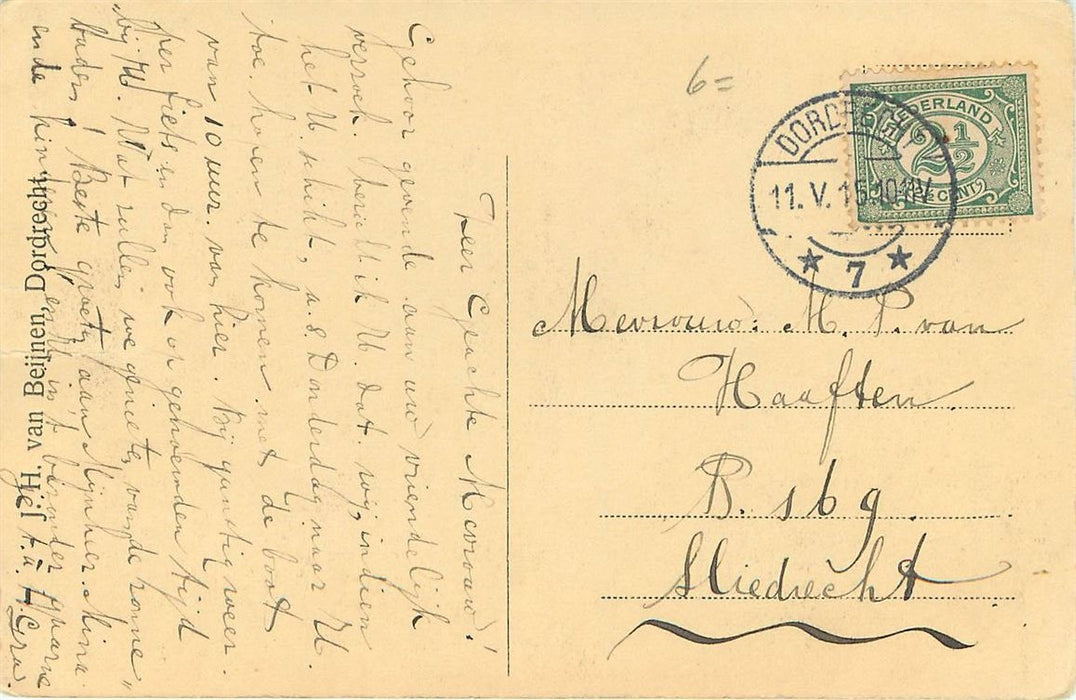 Zeer Geachte Mevrouw!
Gehoor gevende aan uw vriendelijk
verzoek. bericht ik U. dat wij, indien
het U schikt, a.s Donderdag naar U.
toe hopen te komen met de boot
van 10 uur. van hier. Bij gunstig weer.
per fiets en dan ook op genoemden tijd
bij U. Wat zullen we genieten van de zonne
Beste groeten aan Mijnheer. Mina
en de kinderen en U in 't bizonder
J. H. van Beijnen, Dordrecht
6=
DORDRECHT
11.V.15.10-11V
7
NEDERLAND
2½
2½ CENT
Mevrouw: M. P. van
Haaften.
B. 169.
Sliedrecht